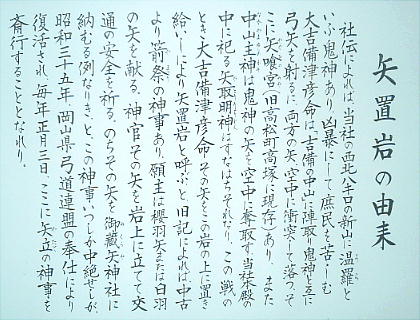 矢置岩の由来
社伝によれば、当社の西北八キロの新山に温羅と
いふ鬼神あり、凶暴にして庶民を苦しむ
大吉備津彦命は、吉備の中山に陣取り鬼神と互に
弓矢を射るに、両方の矢空中に衝突して落つ。そ
こに矢喰宮(旧高松町高塚に現存)あり。また
中山主神は鬼神の矢を空中に奪取す。当社本殿の
中に祀る矢取明神はすなはちそれなり。この戦の
とき大吉備津彦命その矢をこの岩の上に置き
給いしにより矢置岩と呼ぶと。旧記によれば中古
より箭祭の神事あり、願主は櫻羽矢または白羽
の矢を献る。神官その矢を岩上に立てて交
通の安全を祈る。のちその矢を御蔵矢神社に
納むる例なりき、と、この神事いつしか中絶せしが、
昭和三十五年、岡山県弓道連盟の奉仕により
復活され、毎年正月三日、ここに矢立の神事を
斎行することとなれり。